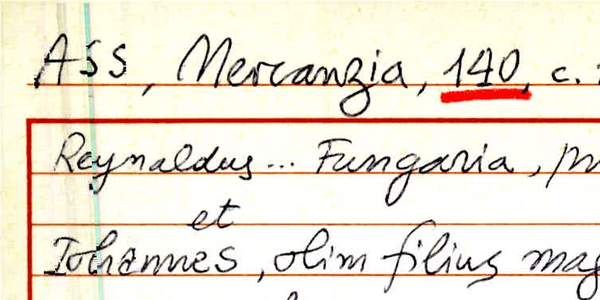 ASS, Mercanzia, 140, c.
Reynaldus... Fungaria,
et
Iohannes, olim filius mag